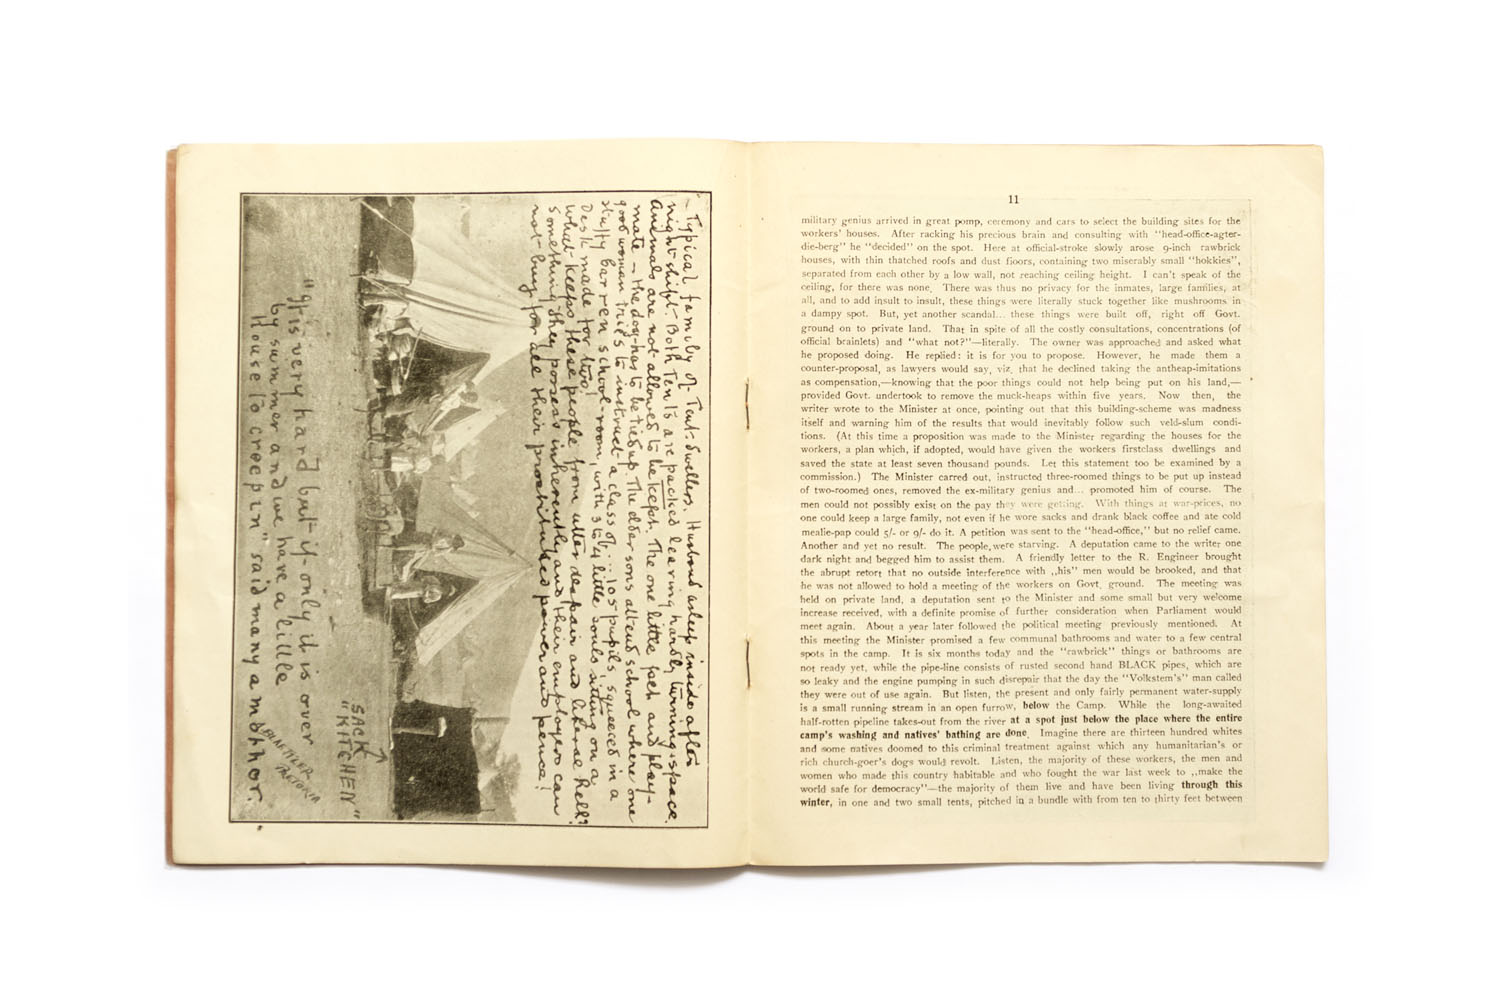 - Typical family of Tent-dwellers. Husband asleep inside after
night-shift. Both Tents are packed leaving hardly turning-space.
Animals are not allowed to be kept. The one little pet and play-
mate - the dog - has to be tied up. The elder sons attend school where one
good woman tries to instruct a class of... 105 pupils, squeezed in a
stuffy barren school-room, with 3 to 4 little souls sitting on a
Desk made for two!
what keeps these people from utter despair and literal Hell?
Something they possess inherently and their employers can
not buy for all their prostituted power and pence!
SACK
"KITCHEN"
"It is very hard but if only it is over
by summer and we have a little
House to creep in" said many a mother.
PRETORIA
11
military genius arrived in great pomp, ceremony and cars to select the building sites for the
workers' houses. After racking his precious brain and consulting with "head-office-agter-
die-berg" he "decided" on the spot. Here at official-stroke slowly arose 9-inch rawbrick
houses, with thin thatched roofs and dust floors, containing two miserably small "hokkies",
separated from each other by a low wall, not reaching ceiling height. I can't speak of the
ceiling, for there was none. There was thus no privacy for the inmates, large families, at
all, and to add insult to insult, these things were literally stuck together like mushrooms in
a dampy spot. But, yet another scandal... these things were built off, right off Govt.
ground on to private land. That in spite of all the costly consultations, concentrations (of
official brainlets) and "what not?"—literally. The owner was approached and asked what
he proposed doing. He replied: it is for you to propose. However, he made them a
counter-proposal, as lawyers would say, viz. that he declined taking the antheap-imitations
as compensation,—knowing that the poor things could not help being put on his land,—
provided Govt. undertook to remove the muck-heaps within five years. Now then, the
writer wrote to the Minister at once, pointing out that this building-scheme was madness
itself and warning him of the results that would inevitably follow such veld-slum condi-
tions. (At this time a proposition was made to the Minister regarding the houses for the
workers, a plan which, if adopted, would have given the workers firstclass dwellings and
saved the state at least seven thousand pounds. Let this statement too be examined by a
commission.) The Minister carred out, instructed three-roomed things to be put up instead
of two-roomed ones, removed the ex-military genius and... promoted him of course. The
men could not possibly exist on the pay they were getting. With things at war-prices, no
one could keep a large family, not even if he wore sacks and drank black coffee and ate cold
mealie-pap could 5/- or 9/- do it. A petition was sent to the "head-office," but no relief came.
Another and yet no result. The people were starving. A deputation came to the writer one
dark night and begged him to assist them. A friendly letter to the R. Engineer brought
the abrupt retort that no outside interference with ,,his" men would be brooked, and that
he was not allowed to hold a meeting of the workers on Govt. ground. The meeting was
held on private land, a deputation sent to the Minister and some small but very welcome
increase received, with a definite promise of further consideration when Parliament would
meet again. About a year later followed the political meeting previously mentioned. At
this meeting the Minister promised a few communal bathrooms and water to a few central
spots in the camp. It is six months today and the "rawbrick" things or bathrooms are
not ready yet, while the pipe-line consists of rusted second hand BLACK pipes, which are
so leaky and the engine pumping in such disrepair that the day the "Volkstem's" man called
they were out of use again. But listen, the present and only fairly permanent water-supply
is a small running stream in an open furrow, below the Camp. While the long-awaited
half-rotten pipeline takes-out from the river at a spot just below the place where the entire
camp's washing and natives' bathing are done. Imagine there are thirteen hundred whites
and some natives doomed to this criminal treatment against which any humanitarian's or
rich church-goer's dogs would revolt. Listen, the majority of these workers, the men and
women who made this country habitable and who fought the war last week to ,,make the
world safe for democracy"—the majority of them live and have been living through this
winter, in one and two small tents, pitched in a bundle with from ten to thirty feet between